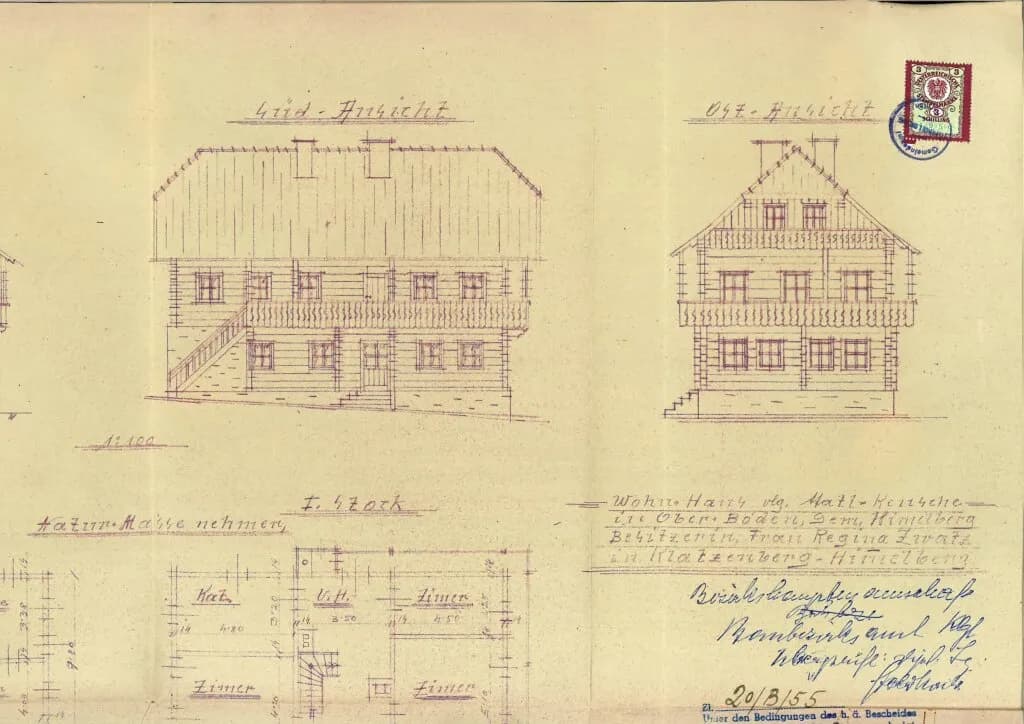 Süd-Ansicht
Ost-Ansicht
3 3
ÖSTERREICHISCHE
STEMPELMARKE
3
SCHILLING
1:100
I. Stock
Natur-Masse nehmen
Wohn-Haus vlg. Matl-Keusche
in Ober-Böden, Dem. Himelberg
Besitzerin, Frau Regina Zwatz
in Klatzenberg-Himelberg
Kat.
V.H.
Zimer
14 4·80
14 3·50
14 4·50
Bezirkshauptmannschaft
Baubezirksamt Kgf
Überprüft:
Zimer
Zimer
Zl. 20/B/55
Unter den Bedingungen des h. ä. Bescheides